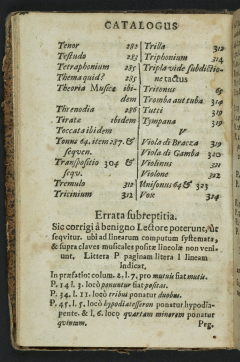 CATALOGUS
Tenor 282
Testudo 285
Tetraphonium 285
Thema quid? 285
Theoria Musicæ ibi-
dem
Threnodia 286
Tirata ibidem
Toccata ibidem
Tonus 64. item 287. &
sequen.
Transpositio 304 &
sequ.
Tremulo 312
Tricinium 312
Trilla 312
Triphonium 314
Tripla vide subdictio-
ne tactus
Tritonus
Tromba aut tuba 314
Tutti 319
Tympana 319
V
Viola di Bracza 319
Viola di Gamba 320
Violinus 321
Violone 322
Unisonus 64 & 323
Vox 314
Errata subreptitia.
Sic corrigi à benigno Lectore poterunt, ut
sequitur. ubi ad linearum computum systemata,
& supra claves musicales positæ lineolæ non veni-
unt. Littera P paginam litera l lineam
Indicat.
In præfatio: colum. 2. l. 7. pro mutuis fiat mutis.
P. 14 l. 3. locò ponuntur fiat positas.
P. 34. l. 11. locò tribus ponatur duobus.
P. 45. l. 5. locò hypodiatessaron ponatur hypodia-
pente. & l. 6. locò quartam minorem ponatur
quintam.
Peg.